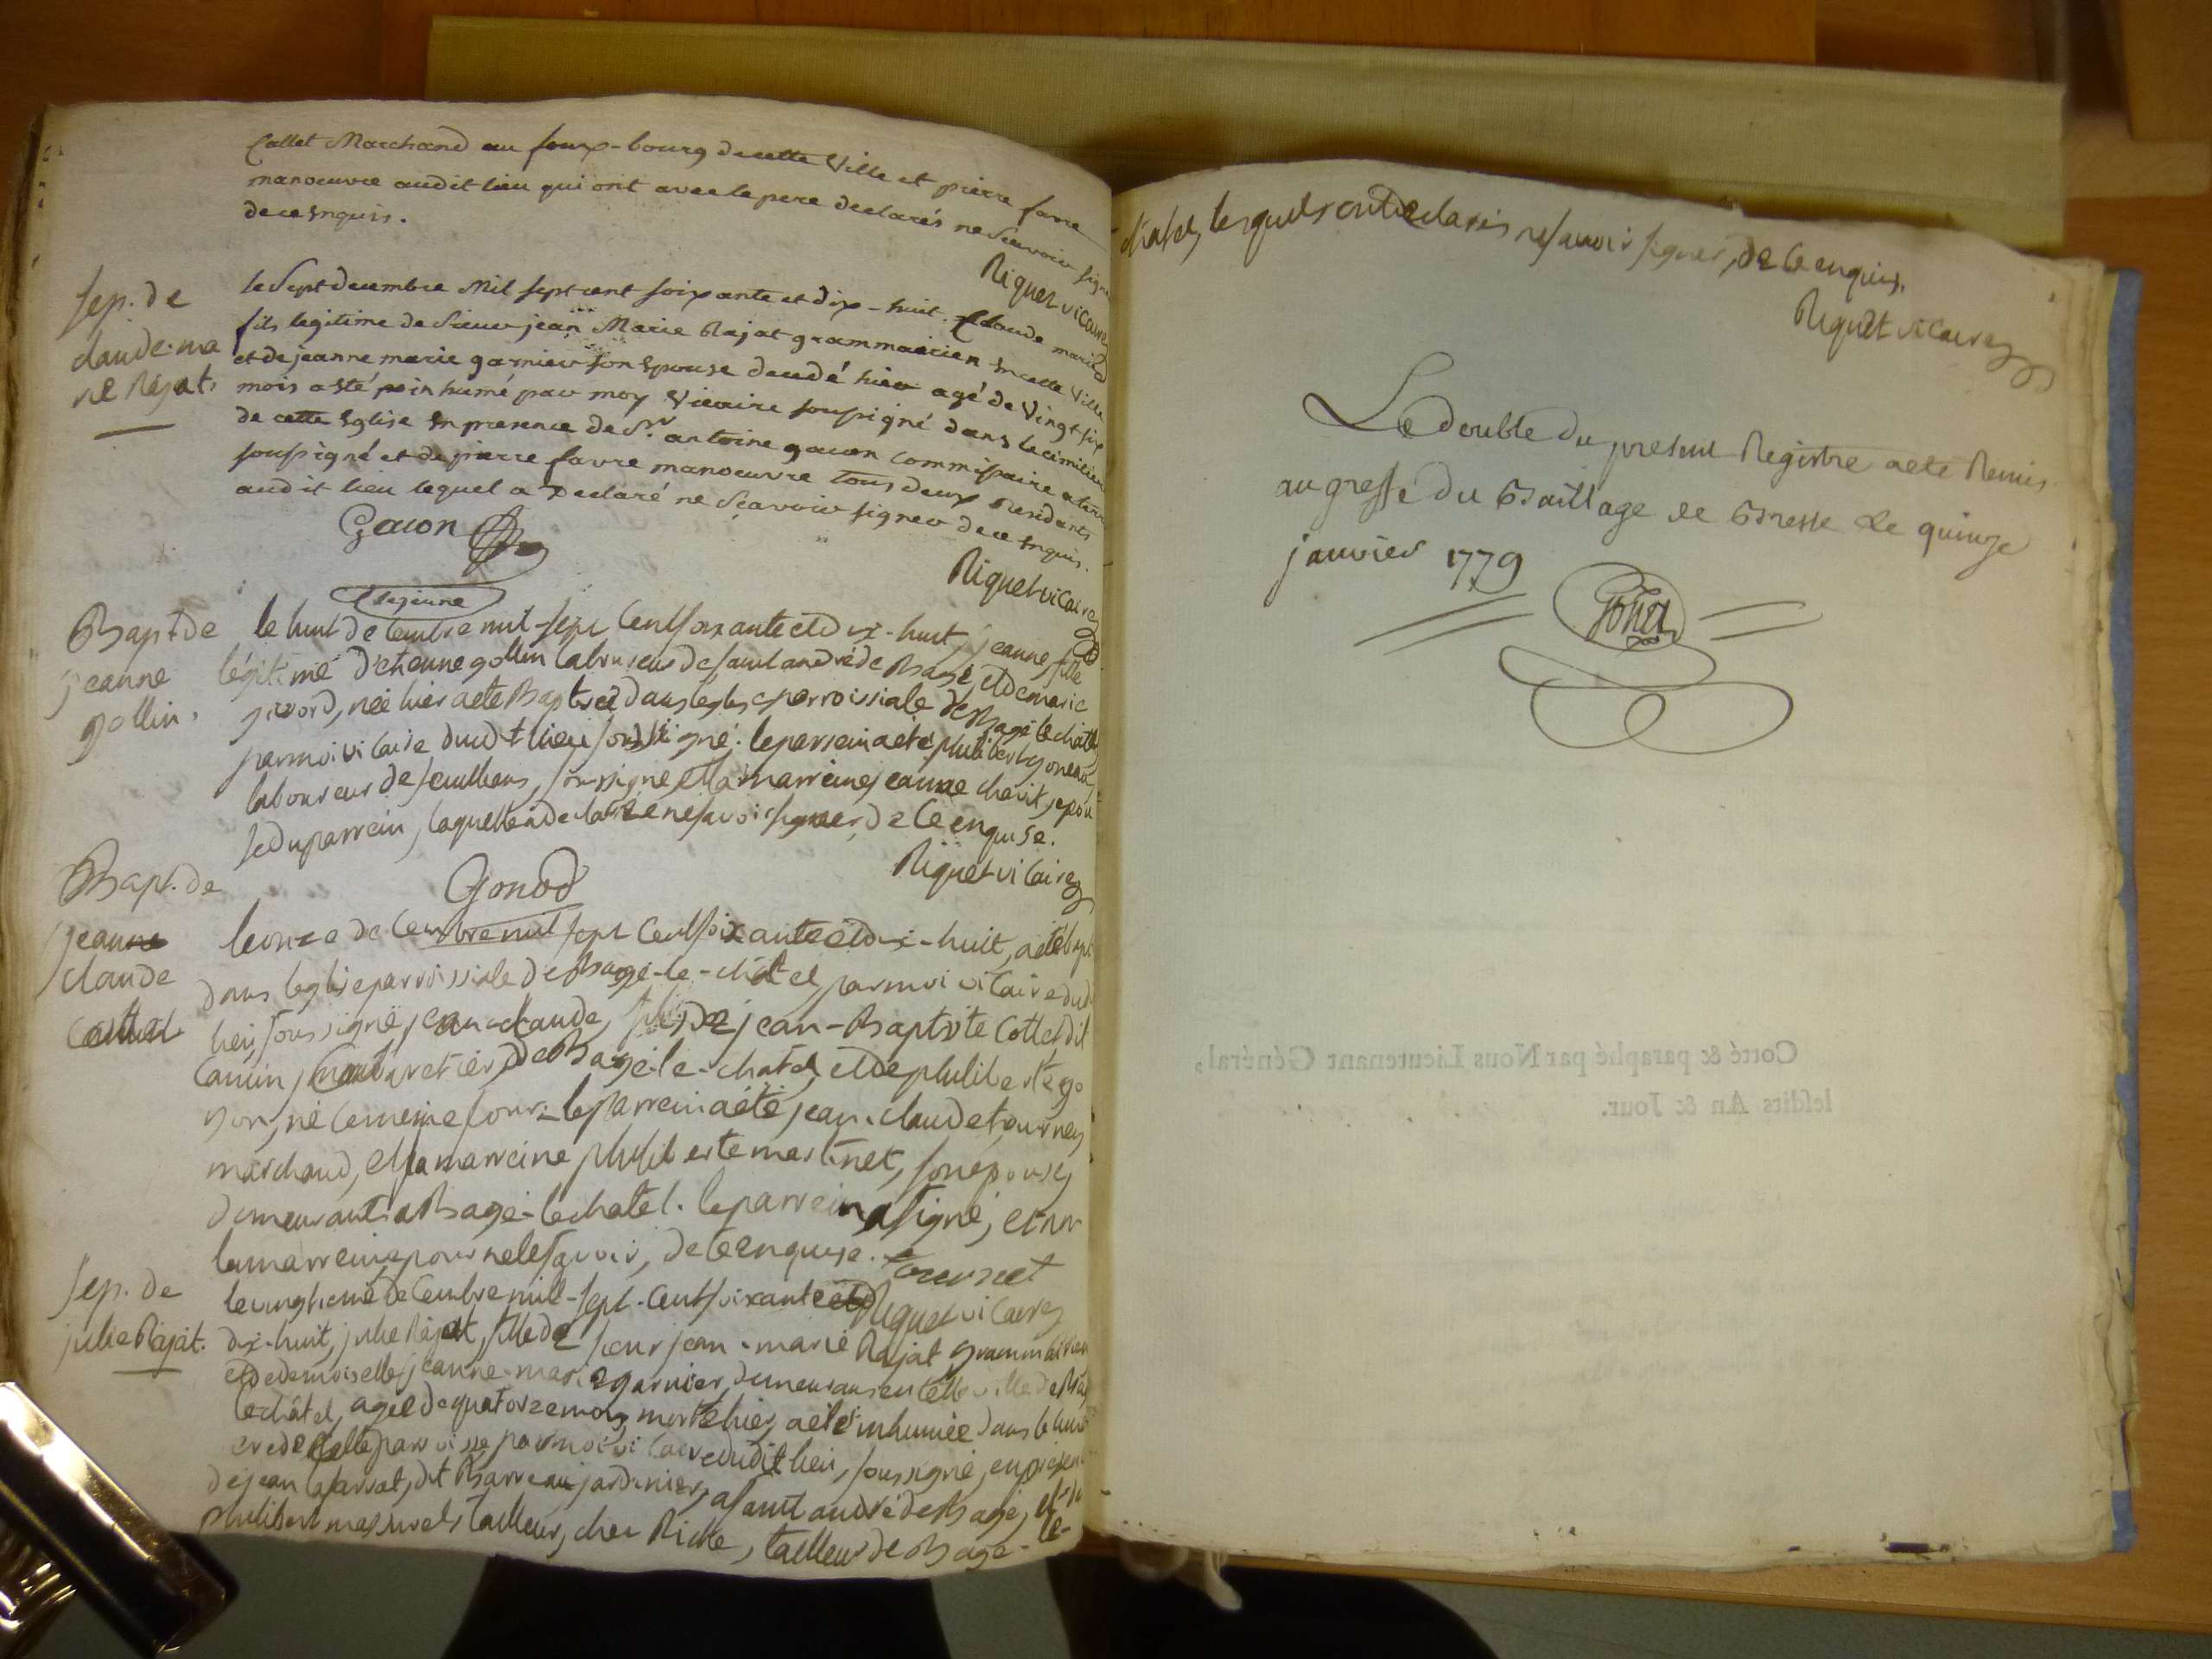 Callet Marchand au faux-bourg de cette Ville et pierre favre
manoeuvre audit lieu qui ont avec le pere declarés ne Scavoir signer
de ce Enquis.
Riquet vicaire
Sep. de
claude-ma
rie Rajat.
le Sept decembre Mil sept cent soixante et dix-huit. Claude marie
fils legitime de Sieur jean Marie Rajat grammairien En cette Ville
et de jeanne marie garnier son Epouse decedé hier agé de Vingt six
mois a eté inhumé par moy Vicaire soussigné dans le cimitiere
de cette Eglise En presence de Sr. antoine gacon Commissaire a terrier
soussigné et de pierre favre manoeuvre tous deux Residants
audit lieu lequel a Declaré ne Sçavoir signer de ce Enquis.
Gacon
Riquet vicaire
le jeune
Bapt de
jeanne
gollin.
le huit decembre mil-sept cent soixante et dix-huit, jeanne, fille
légitime d'etienne gollin laboureur de saint andré de Bagé, et de marie
givord, née hier a eté Baptisée dans leglise parroissiale de Bagé le chatel
par moi vicaire dudt lieu soussigné. le parrein a eté philibert gonod,
laboureur de feuillens, soussigné, et la marreine jeanne chavit, epou
se du parrein, laquelle a declaré ne savoir signer, de ce enquise.
Riquet vicaire
Gonod
Bapt. de
jeanne
claude
Cottet
le onze decembre mil sept cent soixante et dix-huit, a eté bapt
dans leglise parroissiale de Bagé-le-châtel, par moi vicaire dud
lieu, soussigné, jean-claude, fils de jean-Baptiste Cottet dit
Camin, Cabaretier, de Bagé-le-chatel, et de philiberte go
yon, né le meme jour. le parrein a été jean-claude tourney
marchand, et la marreine philiberte martinet, son epouse,
demeurants a Bagé-le chatel. le parrein a signé, et non
la marreine pour ne le sçavoir, de ce enquise.
tournet
Riquet vicaire
Sep. de
julie Rajat.
le vingtieme decembre mil-sept-cent soixante et
dix-huit, julie Rajat, fille de sieur jean-marie Rajat grammairien
et de demoiselle jeanne-marie garnier, demeurans en cette ville de Bagé
le châtel, agée de quatorze mois, morte hier, a eté inhumée dans le cimeti
ere de cette parroisse, par moi vicaire dudit lieu, soussigné, en presen
de jean lafarvat, dit Barreau jardinier, a saint andré de Bagé, et de
philibert tailleur, chez Riche, tailleur de Bagé-le-
chatel, lesquels ont declarés ne savoir signer, de ce enquis.
Riquet vicaire
Le double du present Registre a eté Remis
au greffe du Baillage de Bresse Le quinze
janvier 1779
Cotté & paraphé par Nous Lieutenant Général,
lesdits An & Jour.